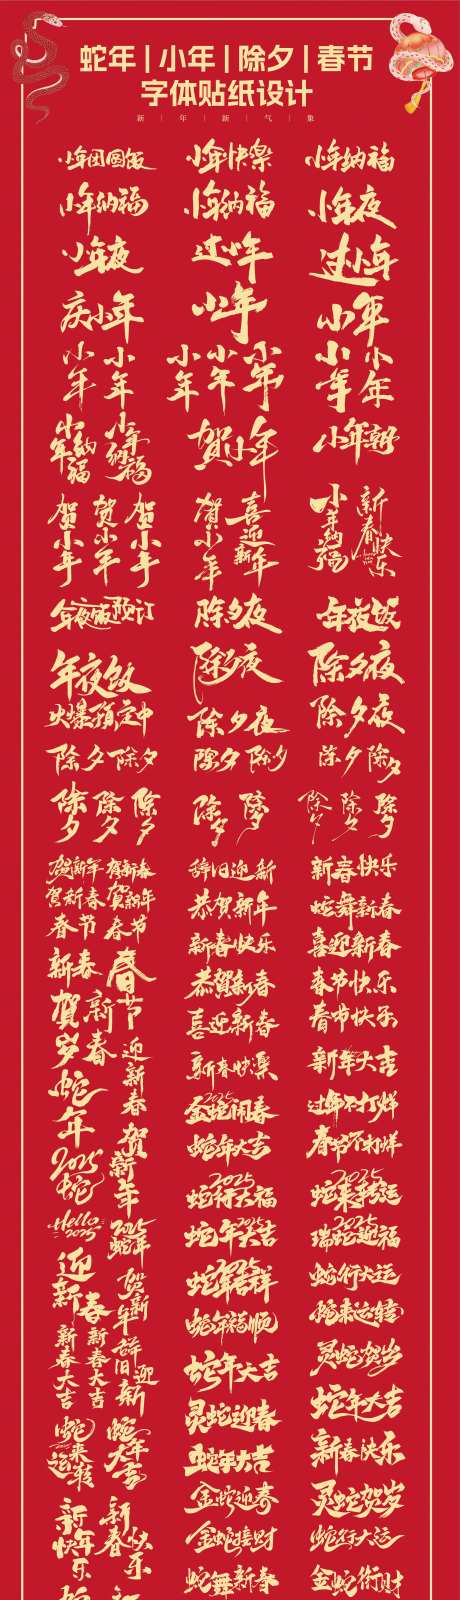 蛇年|小年|除夕|春节
字体贴纸设计
新 | 年 | 新 | 气 | 象
小年团圆饭 小年快乐 小年纳福
小年纳福 小年纳福 小年夜
小年夜 过小年 过小年
庆小年 小年 小年
小年 小年 小年 小年 小年 小年 小年
小年纳福 小年纳福 贺小年 小年朝
贺小年 贺小年 贺小年 贺小年 喜迎新年 小年纳福 新春快乐
年夜饭预订 除夕夜 年夜饭
年夜饭 除夕夜 除夕夜
火爆预定中 除夕夜 除夕夜
除夕 除夕 除夕 除夕 除夕 除夕
除夕 除夕 除夕 除夕 除夕 除夕 除夕 除夕
贺新年 贺新春 辞旧迎新 新春快乐
贺新春 贺新年 恭贺新年 蛇舞新春
春节 春节 新春快乐 喜迎新春
新春 春节 恭贺新春 春节快乐
贺岁 新春 喜迎新春 春节快乐
蛇年 迎新春 新春快乐 新年大吉
贺新年 金蛇闹春 2025 过年不打烊
蛇年大吉 春节不打烊
2025蛇 蛇行大福 2025 蛇来转运 2025
Hello 2025 2025蛇年 蛇年大吉 2025 瑞蛇迎福 2025
迎新春 贺新年 蛇年吉祥 2025 蛇行大运
新春大吉 新春大吉 辞旧迎新 蛇年福顺 蛇来运转
蛇年大吉 灵蛇贺岁
蛇来运转 蛇年大吉 灵蛇迎春 蛇年大吉
蛇年大吉 新春快乐
新年快乐 新春快乐 金蛇迎春 灵蛇贺岁
金蛇接财 蛇行大运
蛇舞新春 金蛇衔财